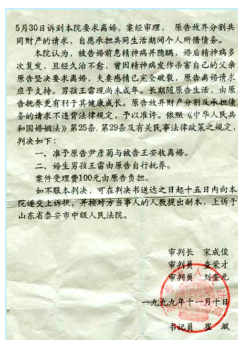 5月30日诉到本院要求离婚。案经审理，原告放弃分割共
同财产的请求，自愿承担共同生活期间个人所借债务。
本院认为，被告婚前患精神病并隐瞒，婚后精神病多
次复发，且经久治不愈，曾因精神病发作杀害自己的父亲
原告坚决要求离婚，夫妻感情已完全破裂，原告离婚请求
应予支持。男孩王雷现尚未成年，长期随原告生活，由原
告抚养更有利于其健康成长。原告放弃财产分割及承担债
务的请求不违背法律规定，予以准许。依照《中华人民共
和国婚姻法》第25条、第29条及有关民事法律政策之规定，
判决如下：
一、准予原告尹彦菊与被告王安收离婚。
二、婚生男孩王雷由原告自行抚养。
案件受理费100元由原告负担。
如不服本判决，可在判决书送达之日起十五日内向本
院递交上诉状，并按对方当事人的人数提出副本，上诉于
山东省泰安市中级人民法院。
审判长 宋成俭
审判员 荣才
审判员 刘
一九九九年十一月十日
书记员 崔